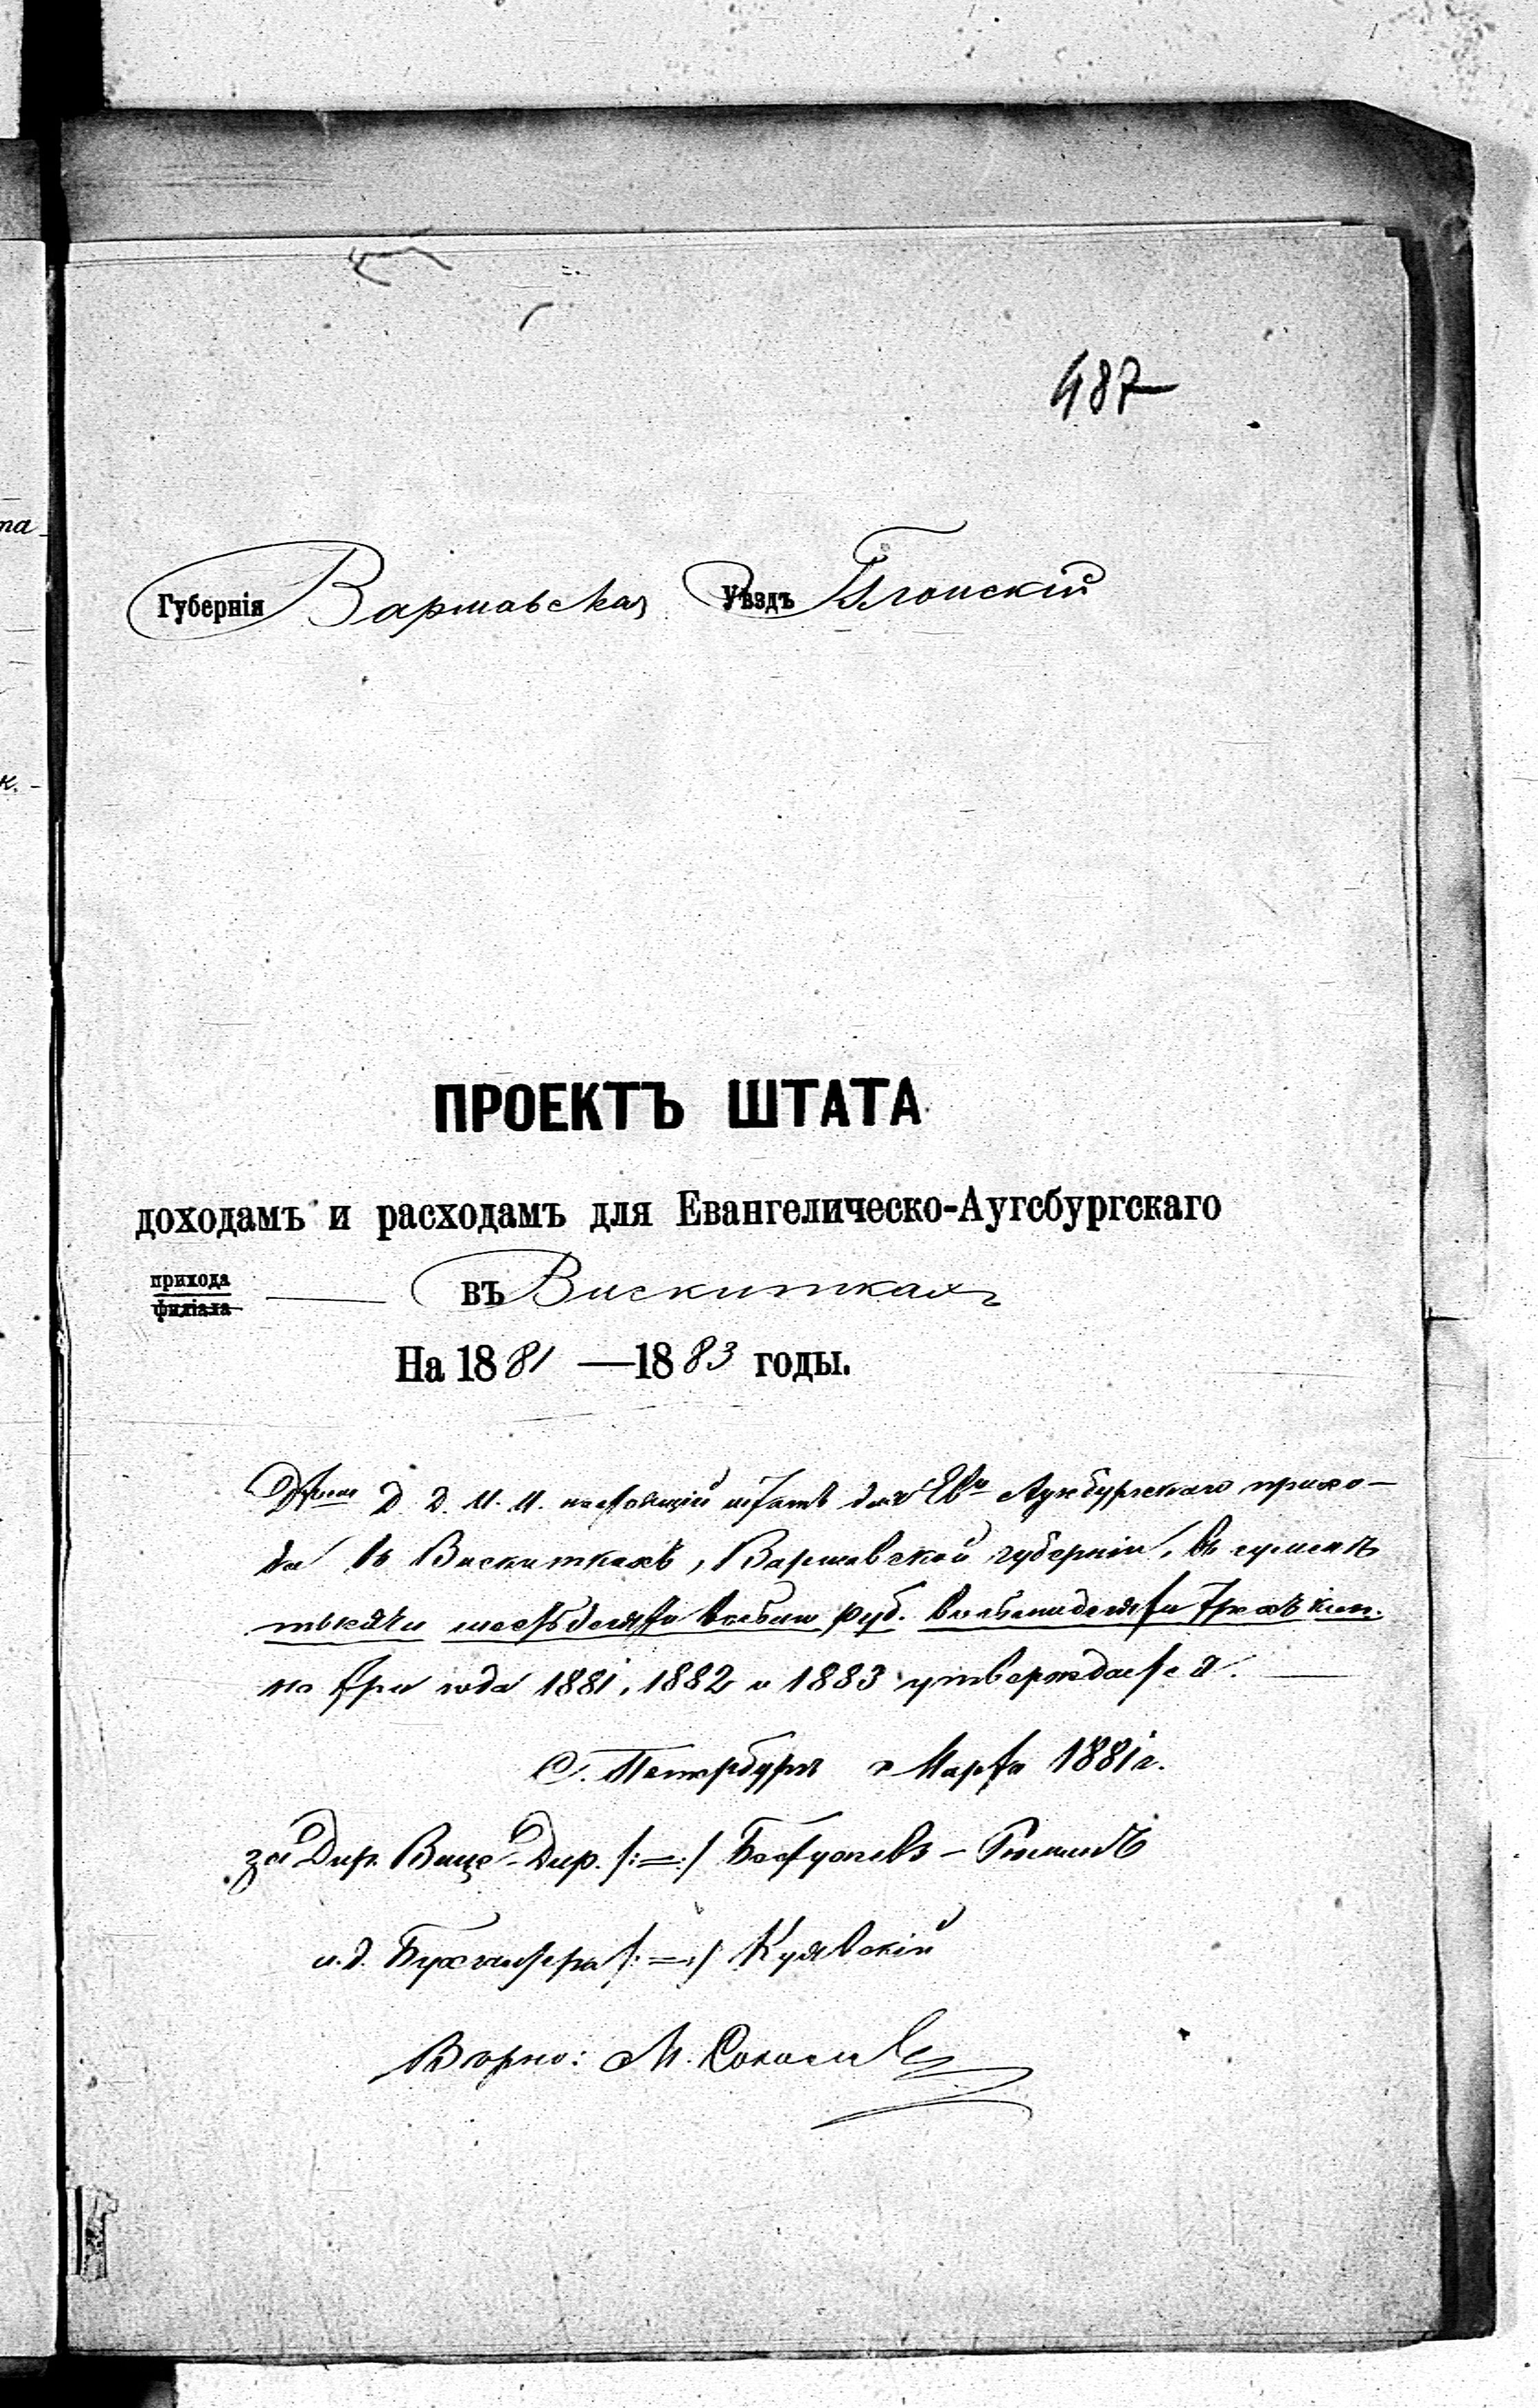 та
к. -
487
Губернія Варшавская Уѣздъ Блонскій
ПРОЕКТЪ ШТАТА
доходамъ и расходамъ для Евангелическо-Аугсбургскаго
прихода
филіала
въ Вискиткахъ
На 1881 —1883 годы.
Д. Д. И. И. настоящій штатъ для Ево Аугсбургскаго прихо-
да въ Вискиткахъ, Варшавской губерніи, въ суммѣ
тысячи шестьдесятъ восемь руб. восемьдесятъ трехъ коп.
на три года 1881, 1882 и 1883 утверждается.
С. Петербургъ Марта 1881 г.
за Дир. Вице-Дир. /:=:/
и. д. Бухгалтера /:=:/ Куявскій
Вѣрно: М.